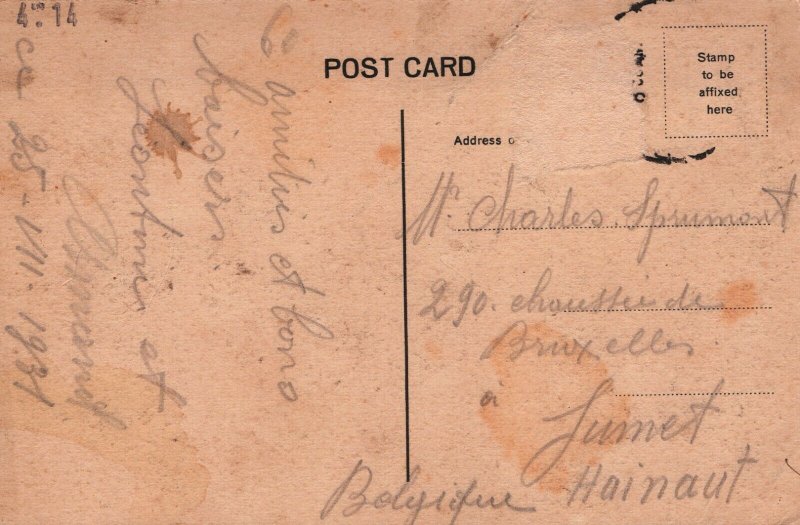 4- 14
POST CARD
Stamp
to be
affixed
here
Address o
amitiés et bons
baisers
Léontine et
Armand
ce 25-VII-1931
Mr. Charles Sprumont
290. chaussée de
Bruxelles.
à Jumet
Hainaut
Belgique